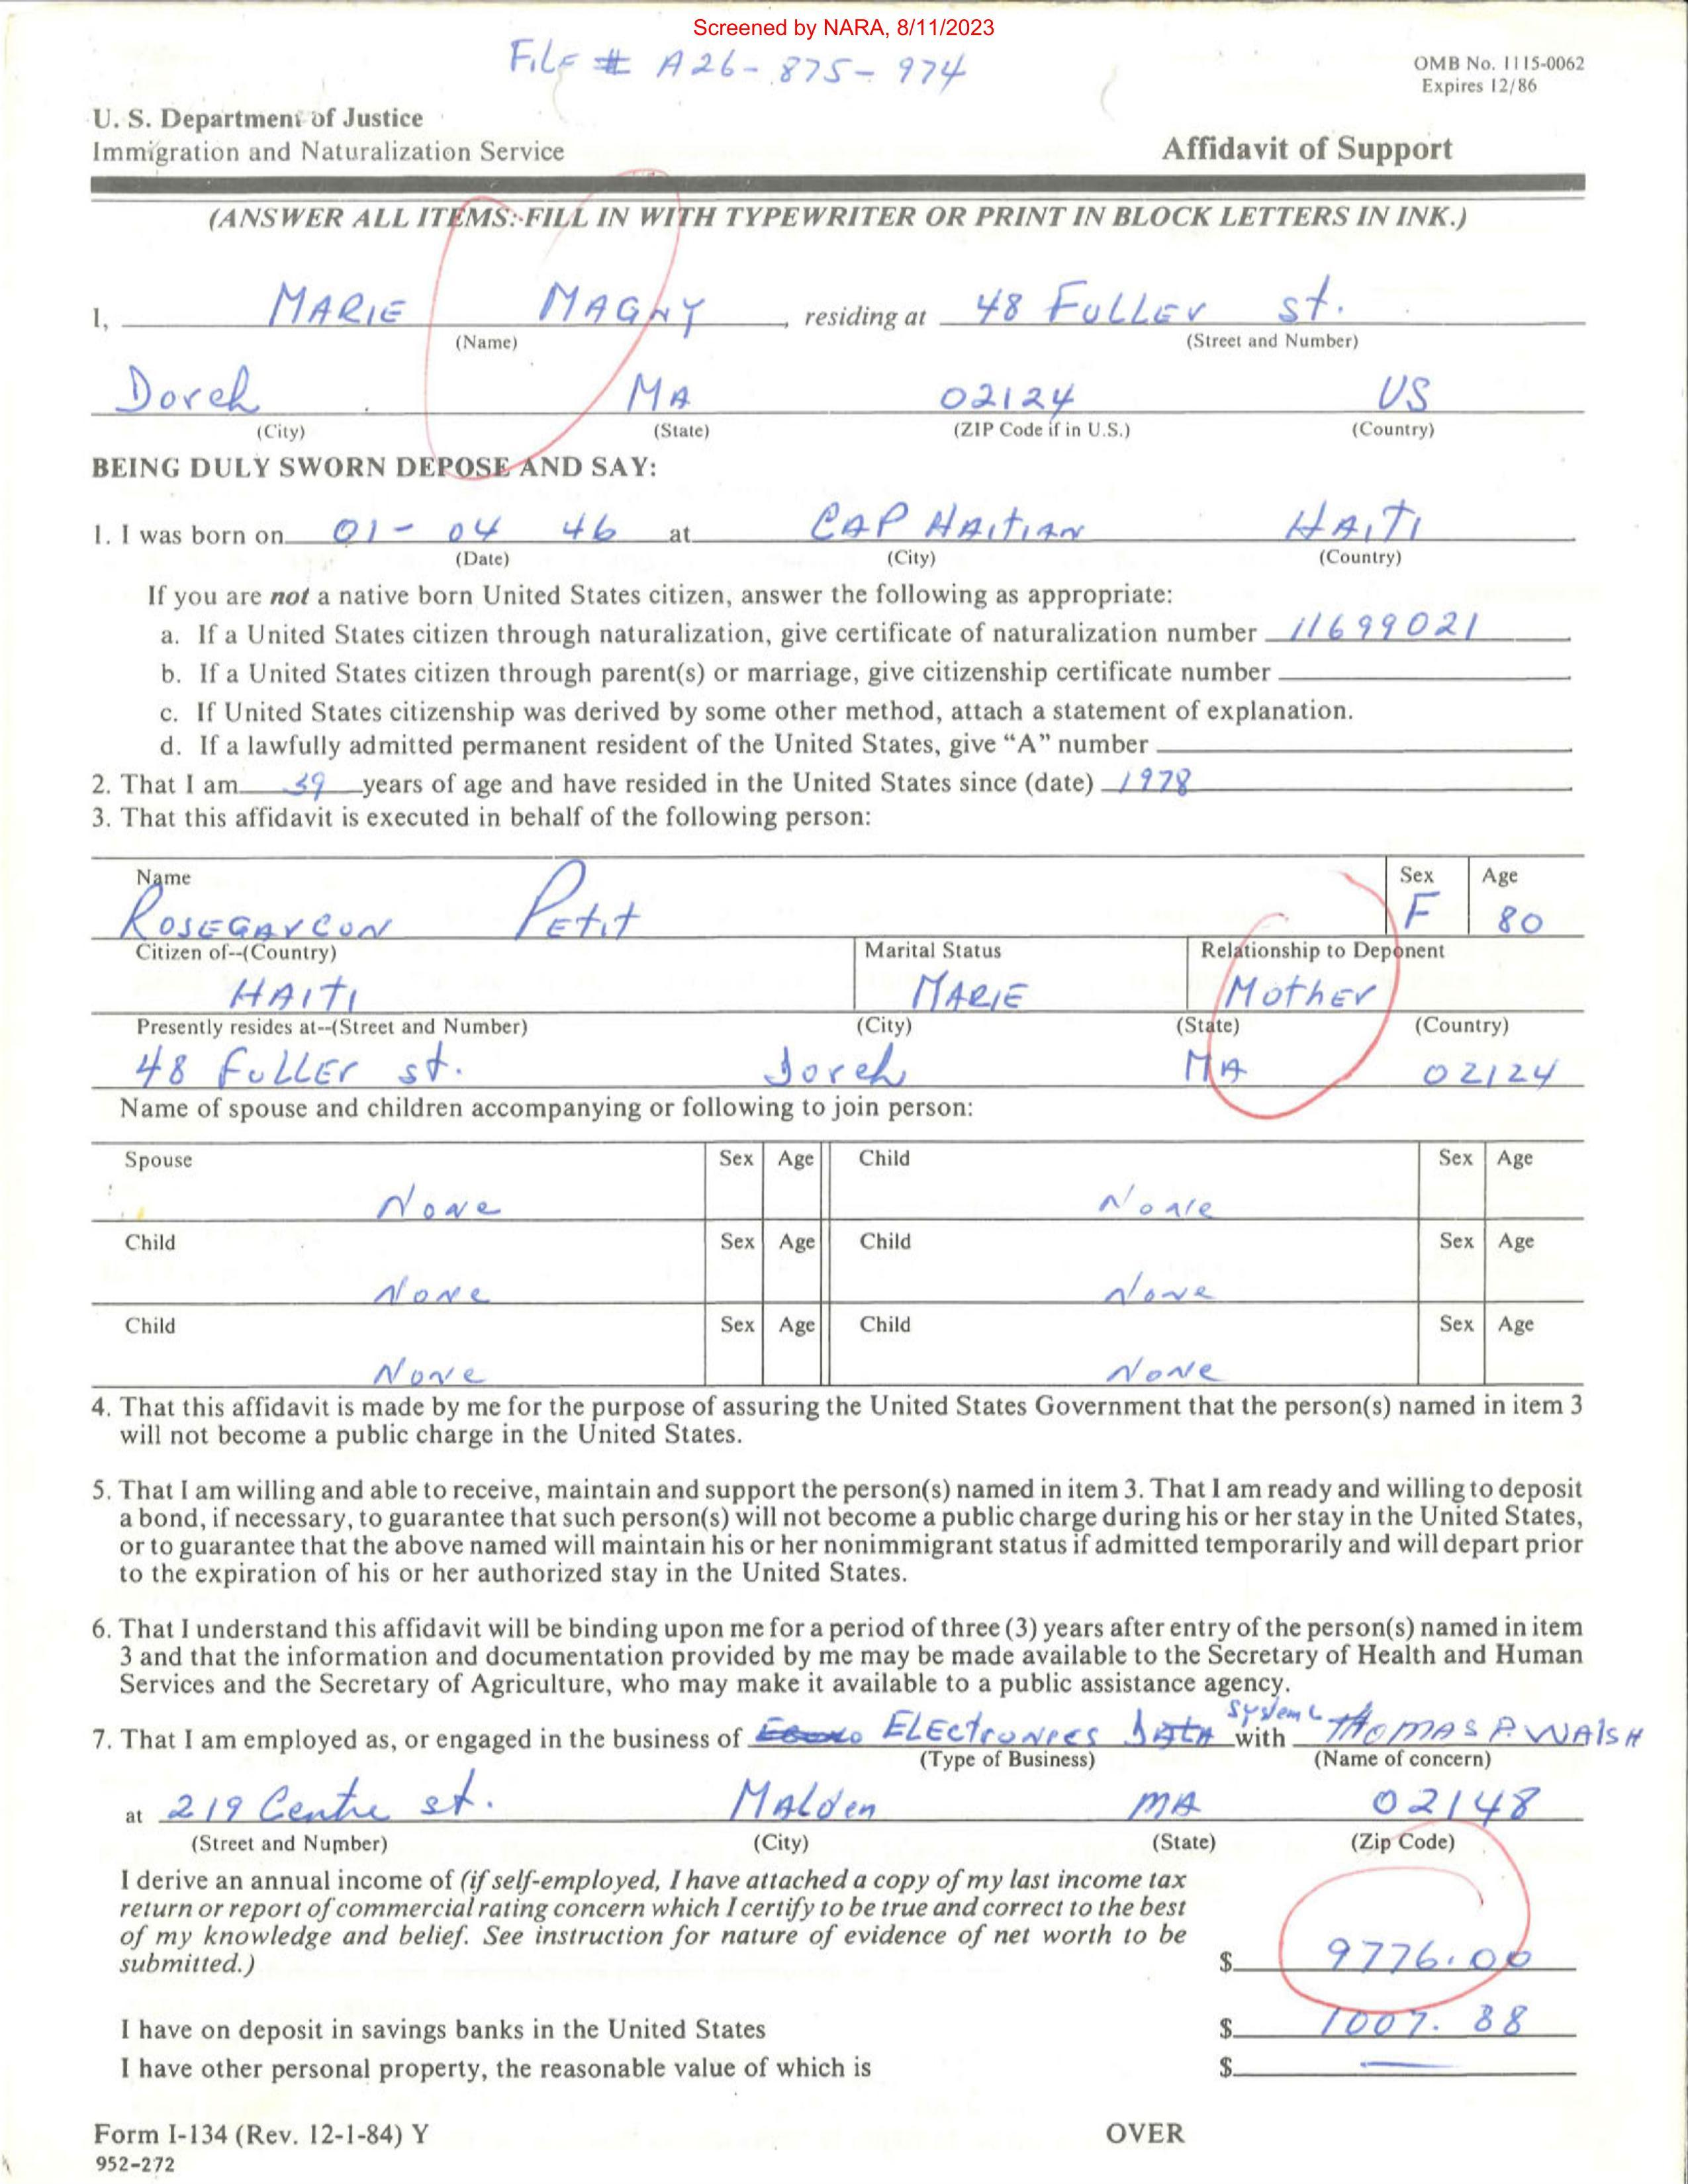 Screened by NARA, 8/11/2023
FiLE # A26-875-974
OMB No. 1115-0062
Expires 12/86
U. S. Department of Justice
Immigration and Naturalization Service
Affidavit of Support
(ANSWER ALL ITEMS: FILL IN WITH TYPEWRITER OR PRINT IN BLOCK LETTERS IN INK.)
I, MARIE MAGNY, residing at 48 FULLEr st.
(Name) (Street and Number)
Dorch MA 02124 US
(City) (State) (ZIP Code if in U.S.) (Country)
BEING DULY SWORN DEPOSE AND SAY:
1. I was born on 01-04 46 at CAP HAITIAN HAITI
(Date) (City) (Country)
If you are not a native born United States citizen, answer the following as appropriate:
a. If a United States citizen through naturalization, give certificate of naturalization number 11699021
b. If a United States citizen through parent(s) or marriage, give citizenship certificate number
c. If United States citizenship was derived by some other method, attach a statement of explanation.
d. If a lawfully admitted permanent resident of the United States, give “A” number
2. That I am 39 years of age and have resided in the United States since (date) 1978
3. That this affidavit is executed in behalf of the following person:
Name Sex Age
ROSEGARCON PEtit F 80
Citizen of--(Country) Marital Status Relationship to Deponent
HAITI MARIE MothEr
Presently resides at--(Street and Number) (City) (State) (Country)
48 FuLLEr st. Dorch MA 02124
Name of spouse and children accompanying or following to join person:
Spouse Sex Age Child Sex Age
None None
Child Sex Age Child Sex Age
None None
Child Sex Age Child Sex Age
None None
4. That this affidavit is made by me for the purpose of assuring the United States Government that the person(s) named in item 3
will not become a public charge in the United States.
5. That I am willing and able to receive, maintain and support the person(s) named in item 3. That I am ready and willing to deposit
a bond, if necessary, to guarantee that such person(s) will not become a public charge during his or her stay in the United States,
or to guarantee that the above named will maintain his or her nonimmigrant status if admitted temporarily and will depart prior
to the expiration of his or her authorized stay in the United States.
6. That I understand this affidavit will be binding upon me for a period of three (3) years after entry of the person(s) named in item
3 and that the information and documentation provided by me may be made available to the Secretary of Health and Human
Services and the Secretary of Agriculture, who may make it available to a public assistance agency.
7. That I am employed as, or engaged in the business of ELEctronics DAtA System with tHOMAS P. WAlSH
(Type of Business) (Name of concern)
at 219 Centre st. MAlden MA 02148
(Street and Number) (City) (State) (Zip Code)
I derive an annual income of (if self-employed, I have attached a copy of my last income tax
return or report of commercial rating concern which I certify to be true and correct to the best
of my knowledge and belief. See instruction for nature of evidence of net worth to be
submitted.) $ 9776.00
I have on deposit in savings banks in the United States $ 1007.88
I have other personal property, the reasonable value of which is $ —
Form I-134 (Rev. 12-1-84) Y OVER
952-272